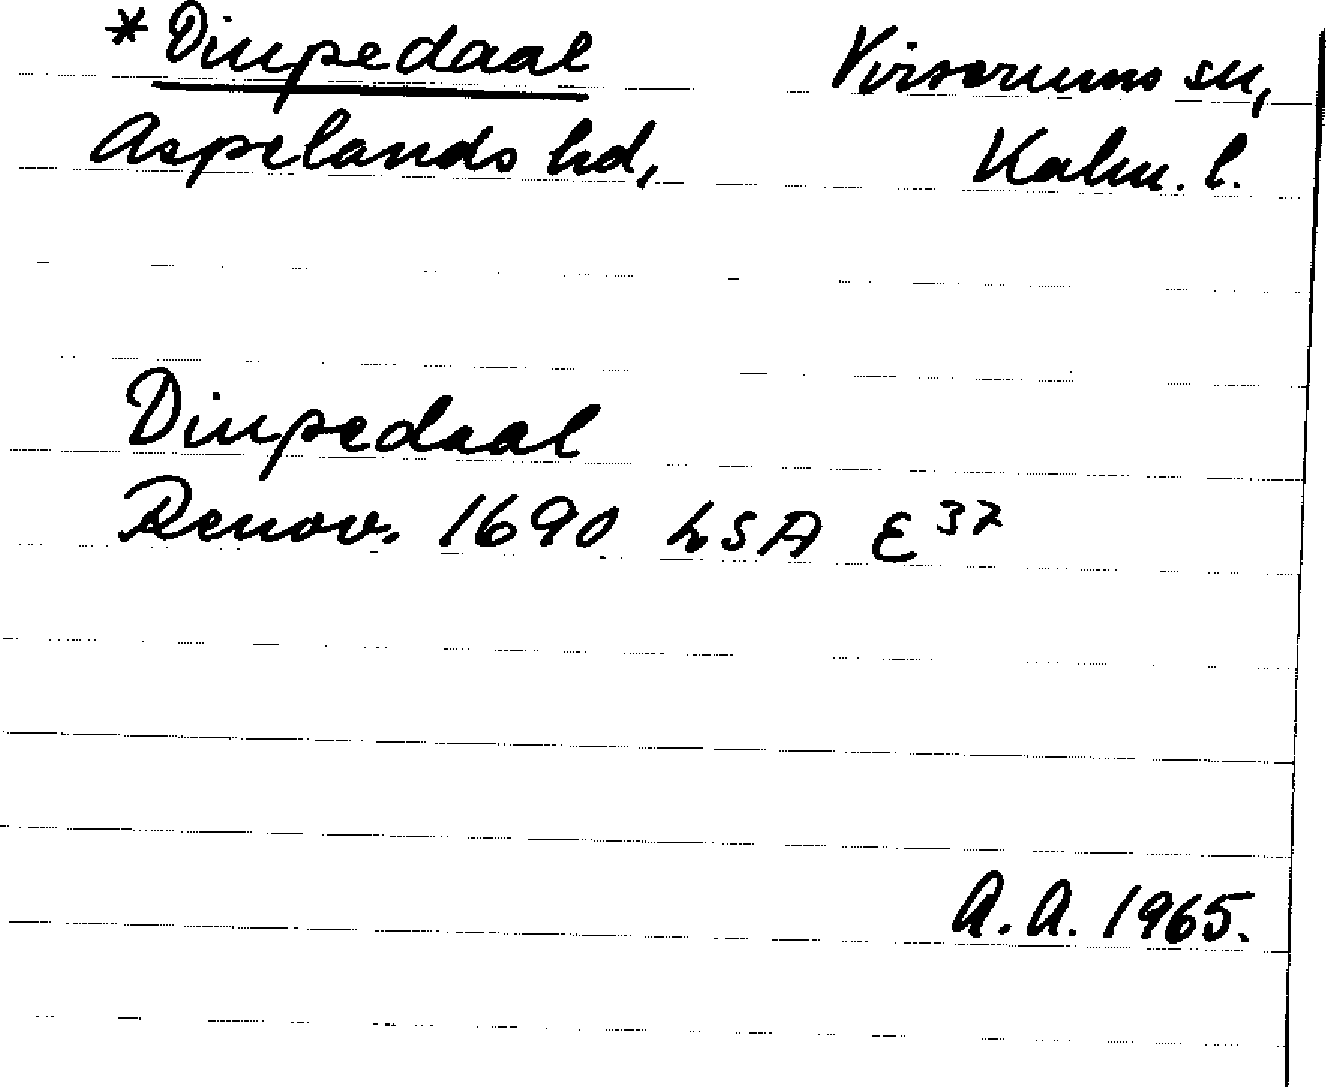 *Dimpedaal Virserums sn,
Aspelands hd, Kalm. l.
Dimpedaal
Renov. 1690 LSA E 37
A.A. 1965.